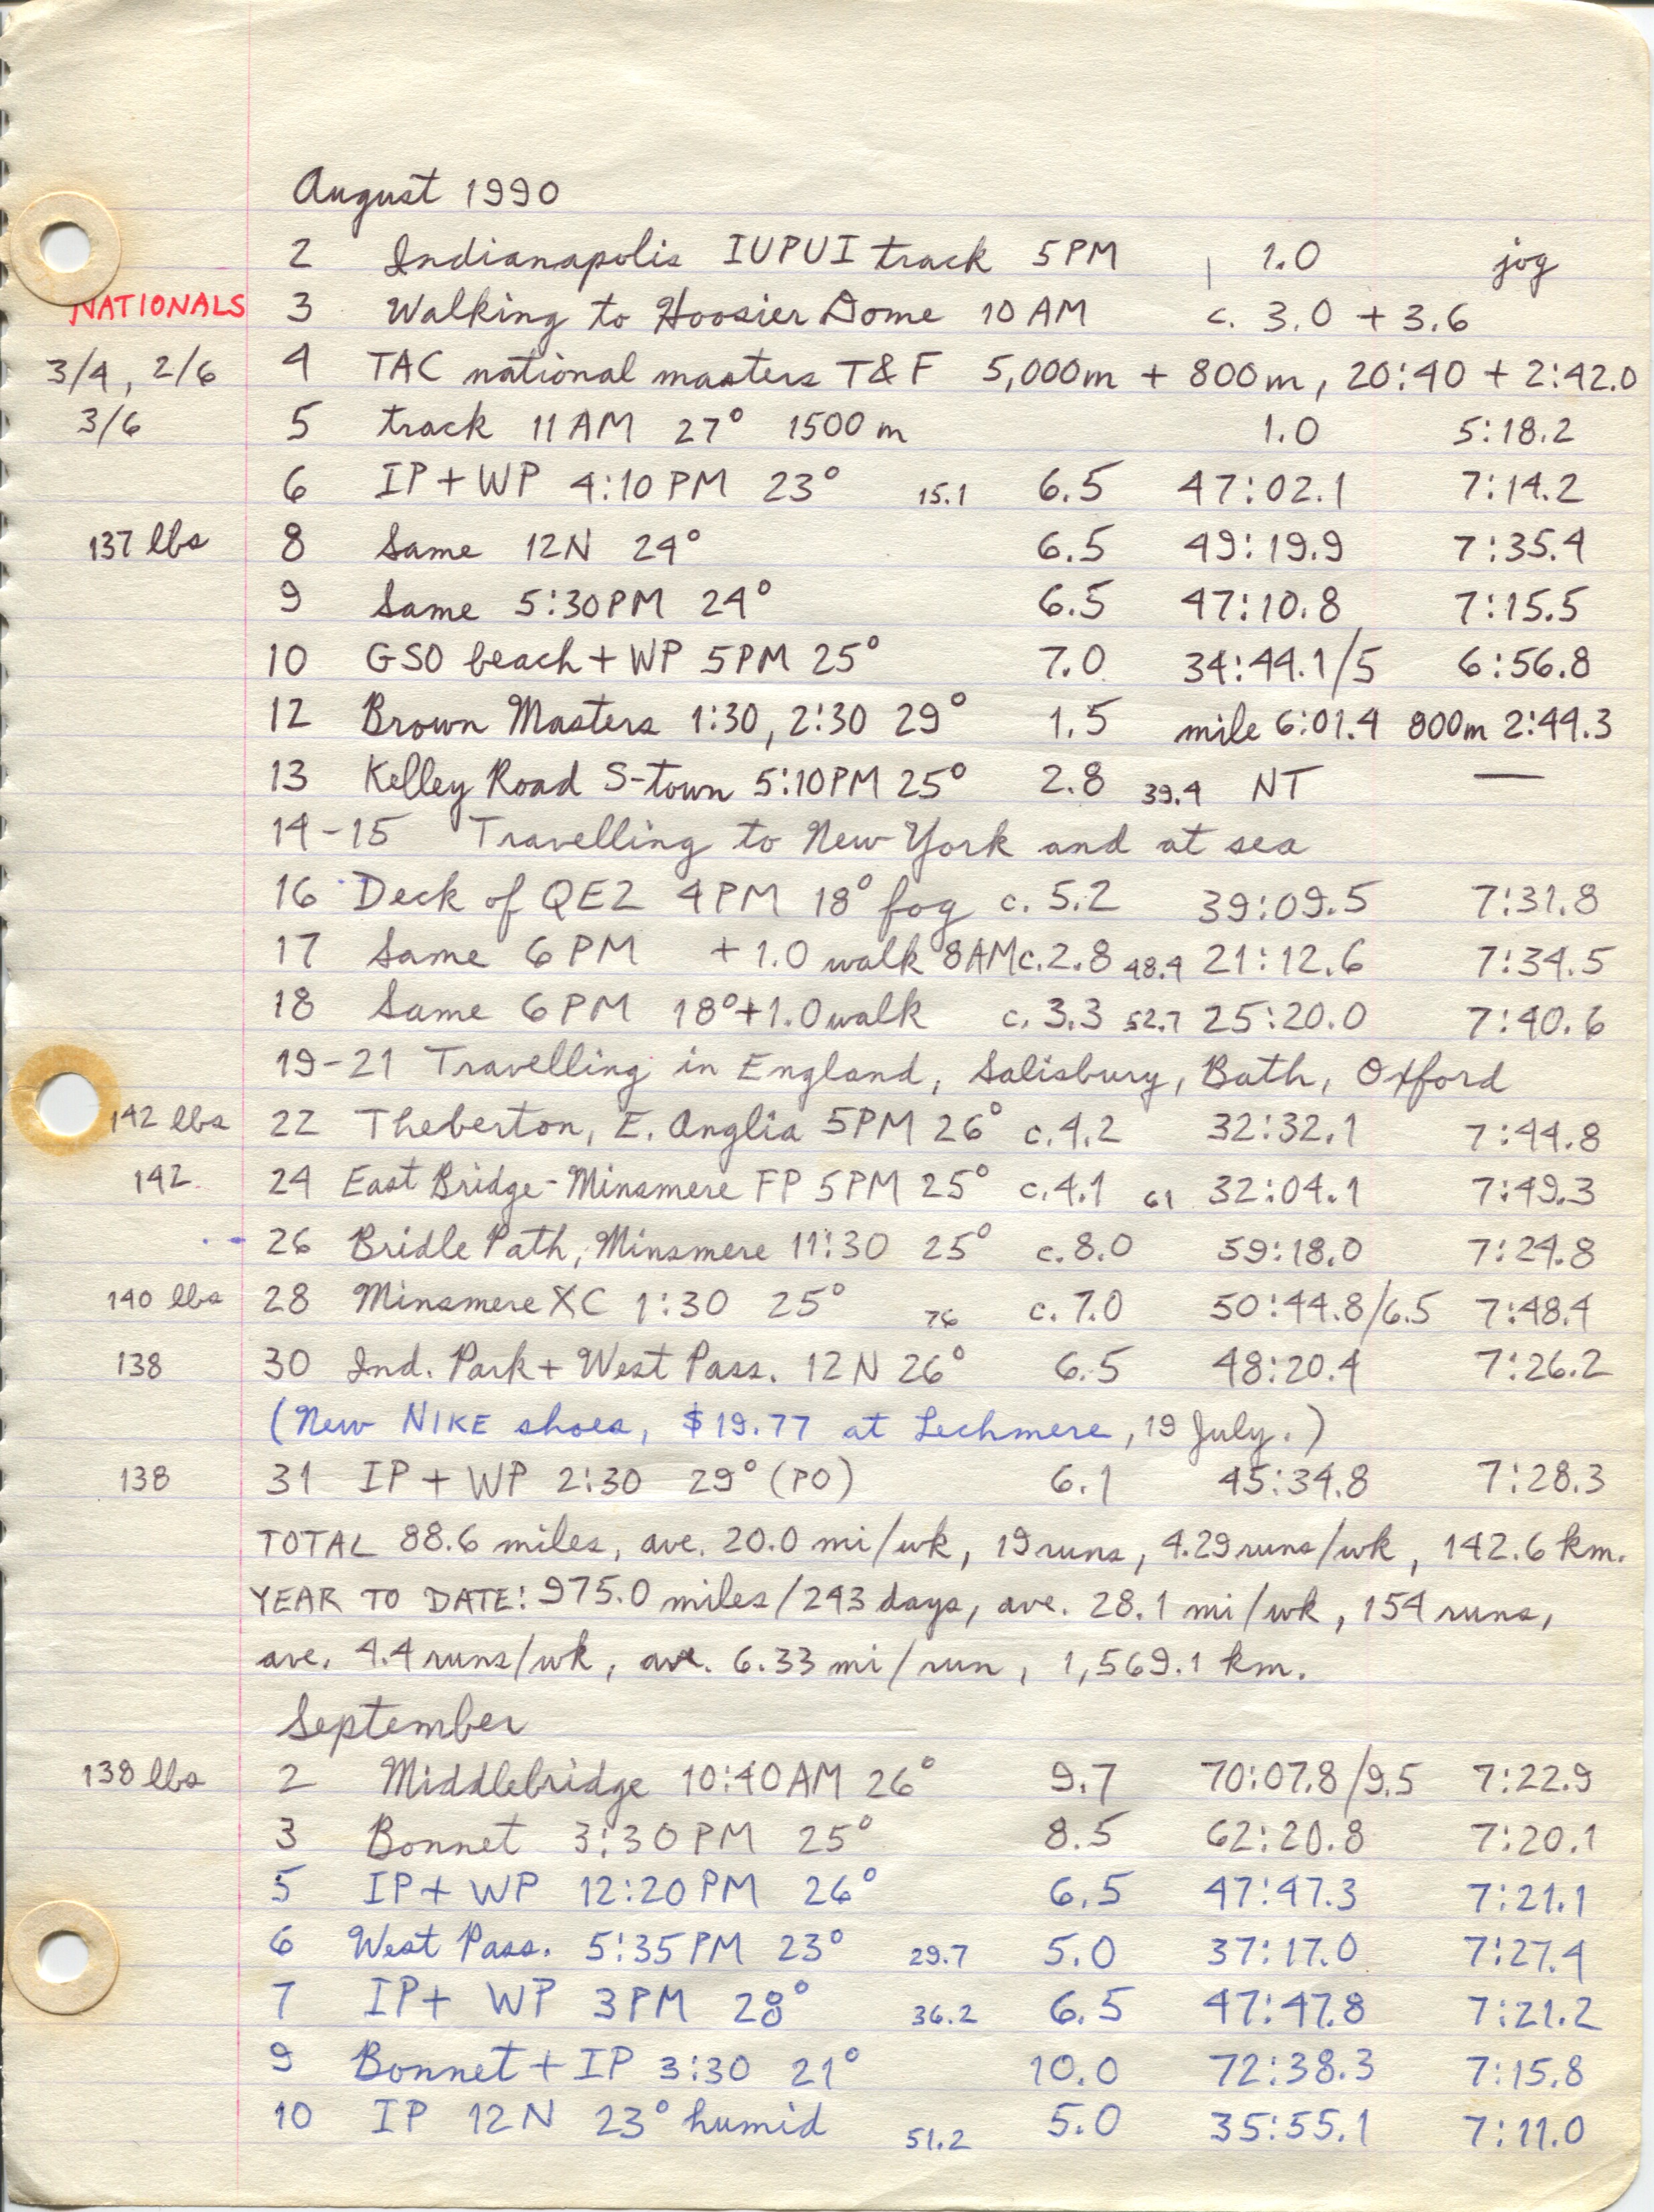 August 1990
2 Indianapolis IUPUI track 5PM 1.0 jog
NATIONALS 3 Walking to Hoosier Dome 10 AM c. 3.0 + 3.6
3/4, 2/6 4 TAC national masters T&F 5,000m + 800m, 20:40 + 2:42.0
3/6 5 track 11AM 27° 1500 m 1.0 5:18.2
6 IP+WP 4:10PM 23° 15.1 6.5 47:02.1 7:14.2
137 lbs 8 Same 12N 24° 6.5 49:19.9 7:35.4
9 Same 5:30PM 24° 6.5 47:10.8 7:15.5
10 GSO beach+WP 5PM 25° 7.0 34:44.1/5 6:56.8
12 Brown Masters 1:30, 2:30 29° 1.5 mile 6:01.4 800m 2:44.3
13 Kelley Road S-town 5:10PM 25° 2.8 39.4 NT —
14-15 Travelling to New York and at sea
16 Deck of QE2 4PM 18° fog c. 5.2 39:09.5 7:31.8
17 Same 6 PM + 1.0 walk 8AM c.2.8 48.4 21:12.6 7:34.5
18 Same 6PM 18°+1.0 walk c. 3.3 52.7 25:20.0 7:40.6
19-21 Travelling in England, Salisbury, Bath, Oxford
142 lbs 22 Theberton, E. Anglia 5PM 26° c.4.2 32:32.1 7:44.8
142 24 East Bridge-Minsmere FP 5PM 25° c.4.1 61 32:04.1 7:49.3
26 Bridle Path, Minsmere 11:30 25° c.8.0 59:18.0 7:24.8
140 lbs 28 Minsmere XC 1:30 25° 76 c. 7.0 50:44.8/6.5 7:48.4
138 30 Ind. Park + West Pass. 12N 26° 6.5 48:20.4 7:26.2
(New NIKE shoes, $19.77 at Lechmere, 19 July.)
138 31 IP + WP 2:30 29° (PO) 6.1 45:34.8 7:28.3
TOTAL 88.6 miles, ave. 20.0 mi/wk, 19 runs, 4.29 runs/wk, 142.6 km.
YEAR TO DATE: 975.0 miles/243 days, ave. 28.1 mi/wk, 154 runs,
ave. 4.4 runs/wk, ave. 6.33 mi/run, 1,569.1 km.
September
138 lbs 2 Middlebridge 10:40AM 26° 9.7 70:07.8/9.5 7:22.9
3 Bonnet 3:30PM 25° 8.5 62:20.8 7:20.1
5 IP+ WP 12:20PM 26° 6.5 47:47.3 7:21.1
6 West Pass. 5:35PM 23° 29.7 5.0 37:17.0 7:27.4
7 IP+ WP 3PM 28° 36.2 6.5 47:47.8 7:21.2
9 Bonnet + IP 3:30 21° 10.0 72:38.3 7:15.8
10 IP 12N 23° humid 51.2 5.0 35:55.1 7:11.0